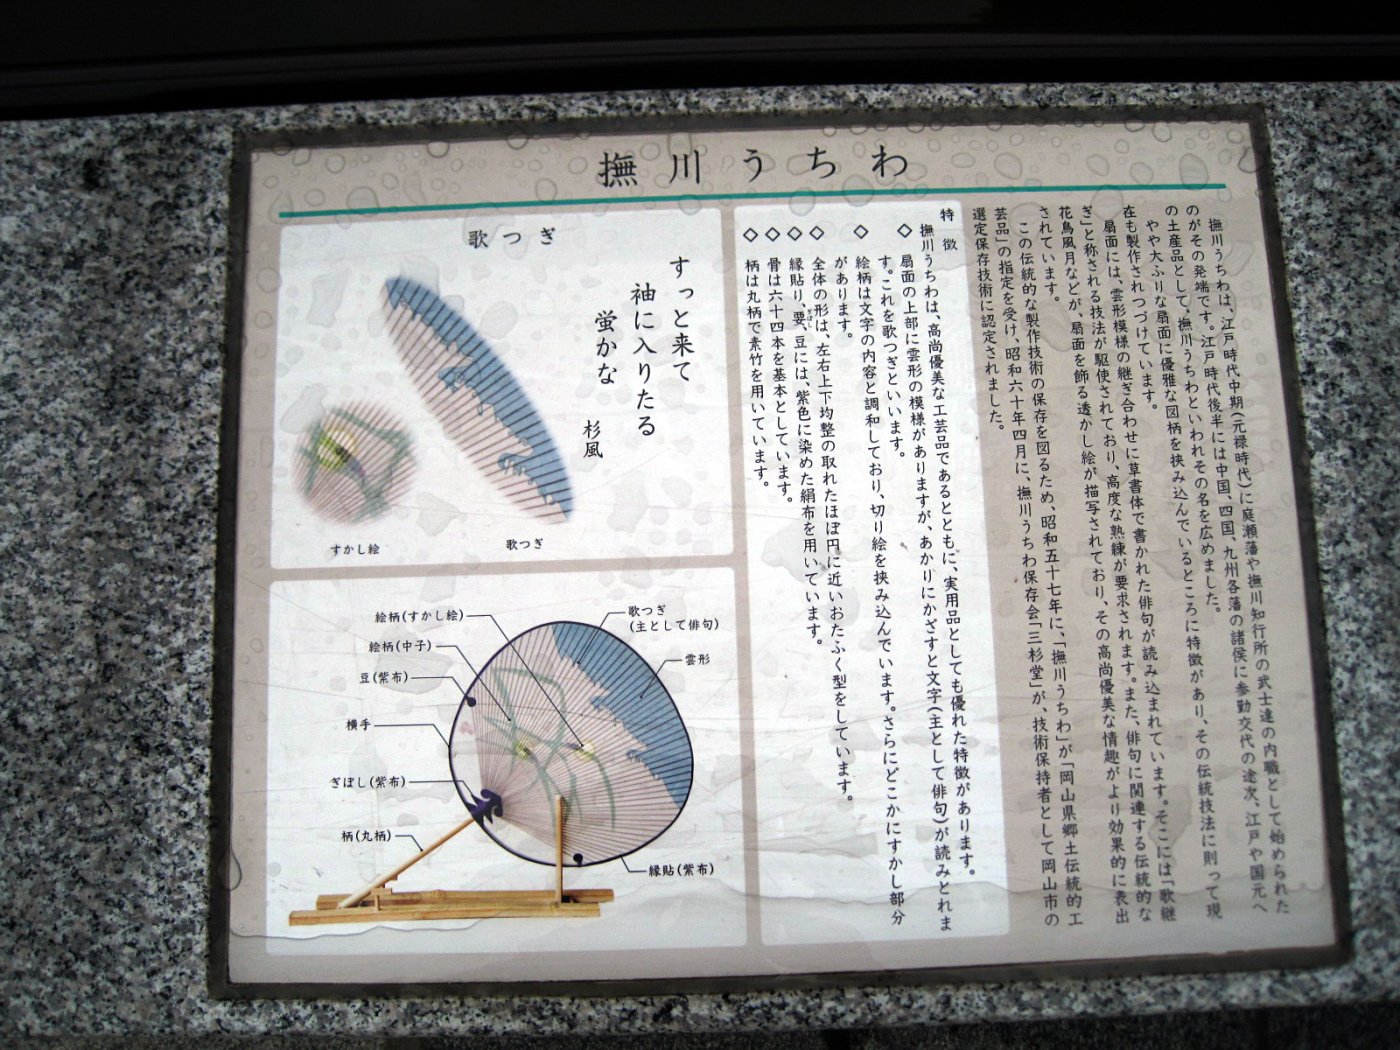 撫川うちわ
撫川うちわは、江戸時代中期(元禄時代)に庭瀬藩や撫川知行所の武士達の内職として始められた
のがその発端です。江戸時代後半には中国、四国、九州各藩の諸侯に参勤交代の途次、江戸や国元へ
の土産品として、撫川うちわといわれその名を広めました。
やや大ぶりな扇面に優雅な図柄を挟み込んでいるところに特徴があり、その伝統技法に則って現
在も製作されつづけています。
扇面には、雲形模様の継ぎ合わせに草書体で書かれた俳句が読み込まれています。そこには「歌継
ぎ」と称される技法が駆使されており、高度な熟練が要求されます。また、俳句に関連する伝統的な
花鳥風月などが、扇面を飾る透かし絵が描写されており、その高尚優美な情趣がより効果的に表出
されています。
この伝統的な製作技術の保存を図るため、昭和五十七年に、「撫川うちわ」が「岡山県郷土伝統的工
芸品」の指定を受け、昭和六十年四月に、撫川うちわ保存会「三杉堂」が、技術保持者として岡山市の
選定保存技術に認定されました。
特徴
撫川うちわは、高尚優美な工芸品であるとともに、実用品としても優れた特徴があります。
◇扇面の上部に雲形の模様がありますが、あかりにかざすと文字(主として俳句)が読みとれま
す。これを歌つぎといいます。
◇絵柄は文字の内容と調和しており、切り絵を挟み込んでいます。さらにどこかにすかし部分
があります。
◇全体の形は、左右上下均整の取れたほぼ円に近いおたふく型をしています。
◇縁貼り、要、豆には、紫色に染めた絹布を用いています。
◇骨は六十四本を基本としています。
◇柄は丸柄で素竹を用いています。
歌つぎ
すっと来て
袖に入りたる
蛍かな
杉風
すかし絵
歌つぎ
絵柄(すかし絵)
絵柄(中子)
豆(紫布)
横手
ぎぼし(紫布)
柄(丸柄)
歌つぎ
(主として俳句)
雲形
縁貼(紫布)